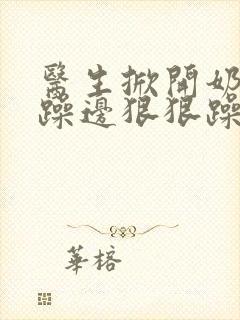 醫生掀開奶
躁邊狠狠躁
華榕